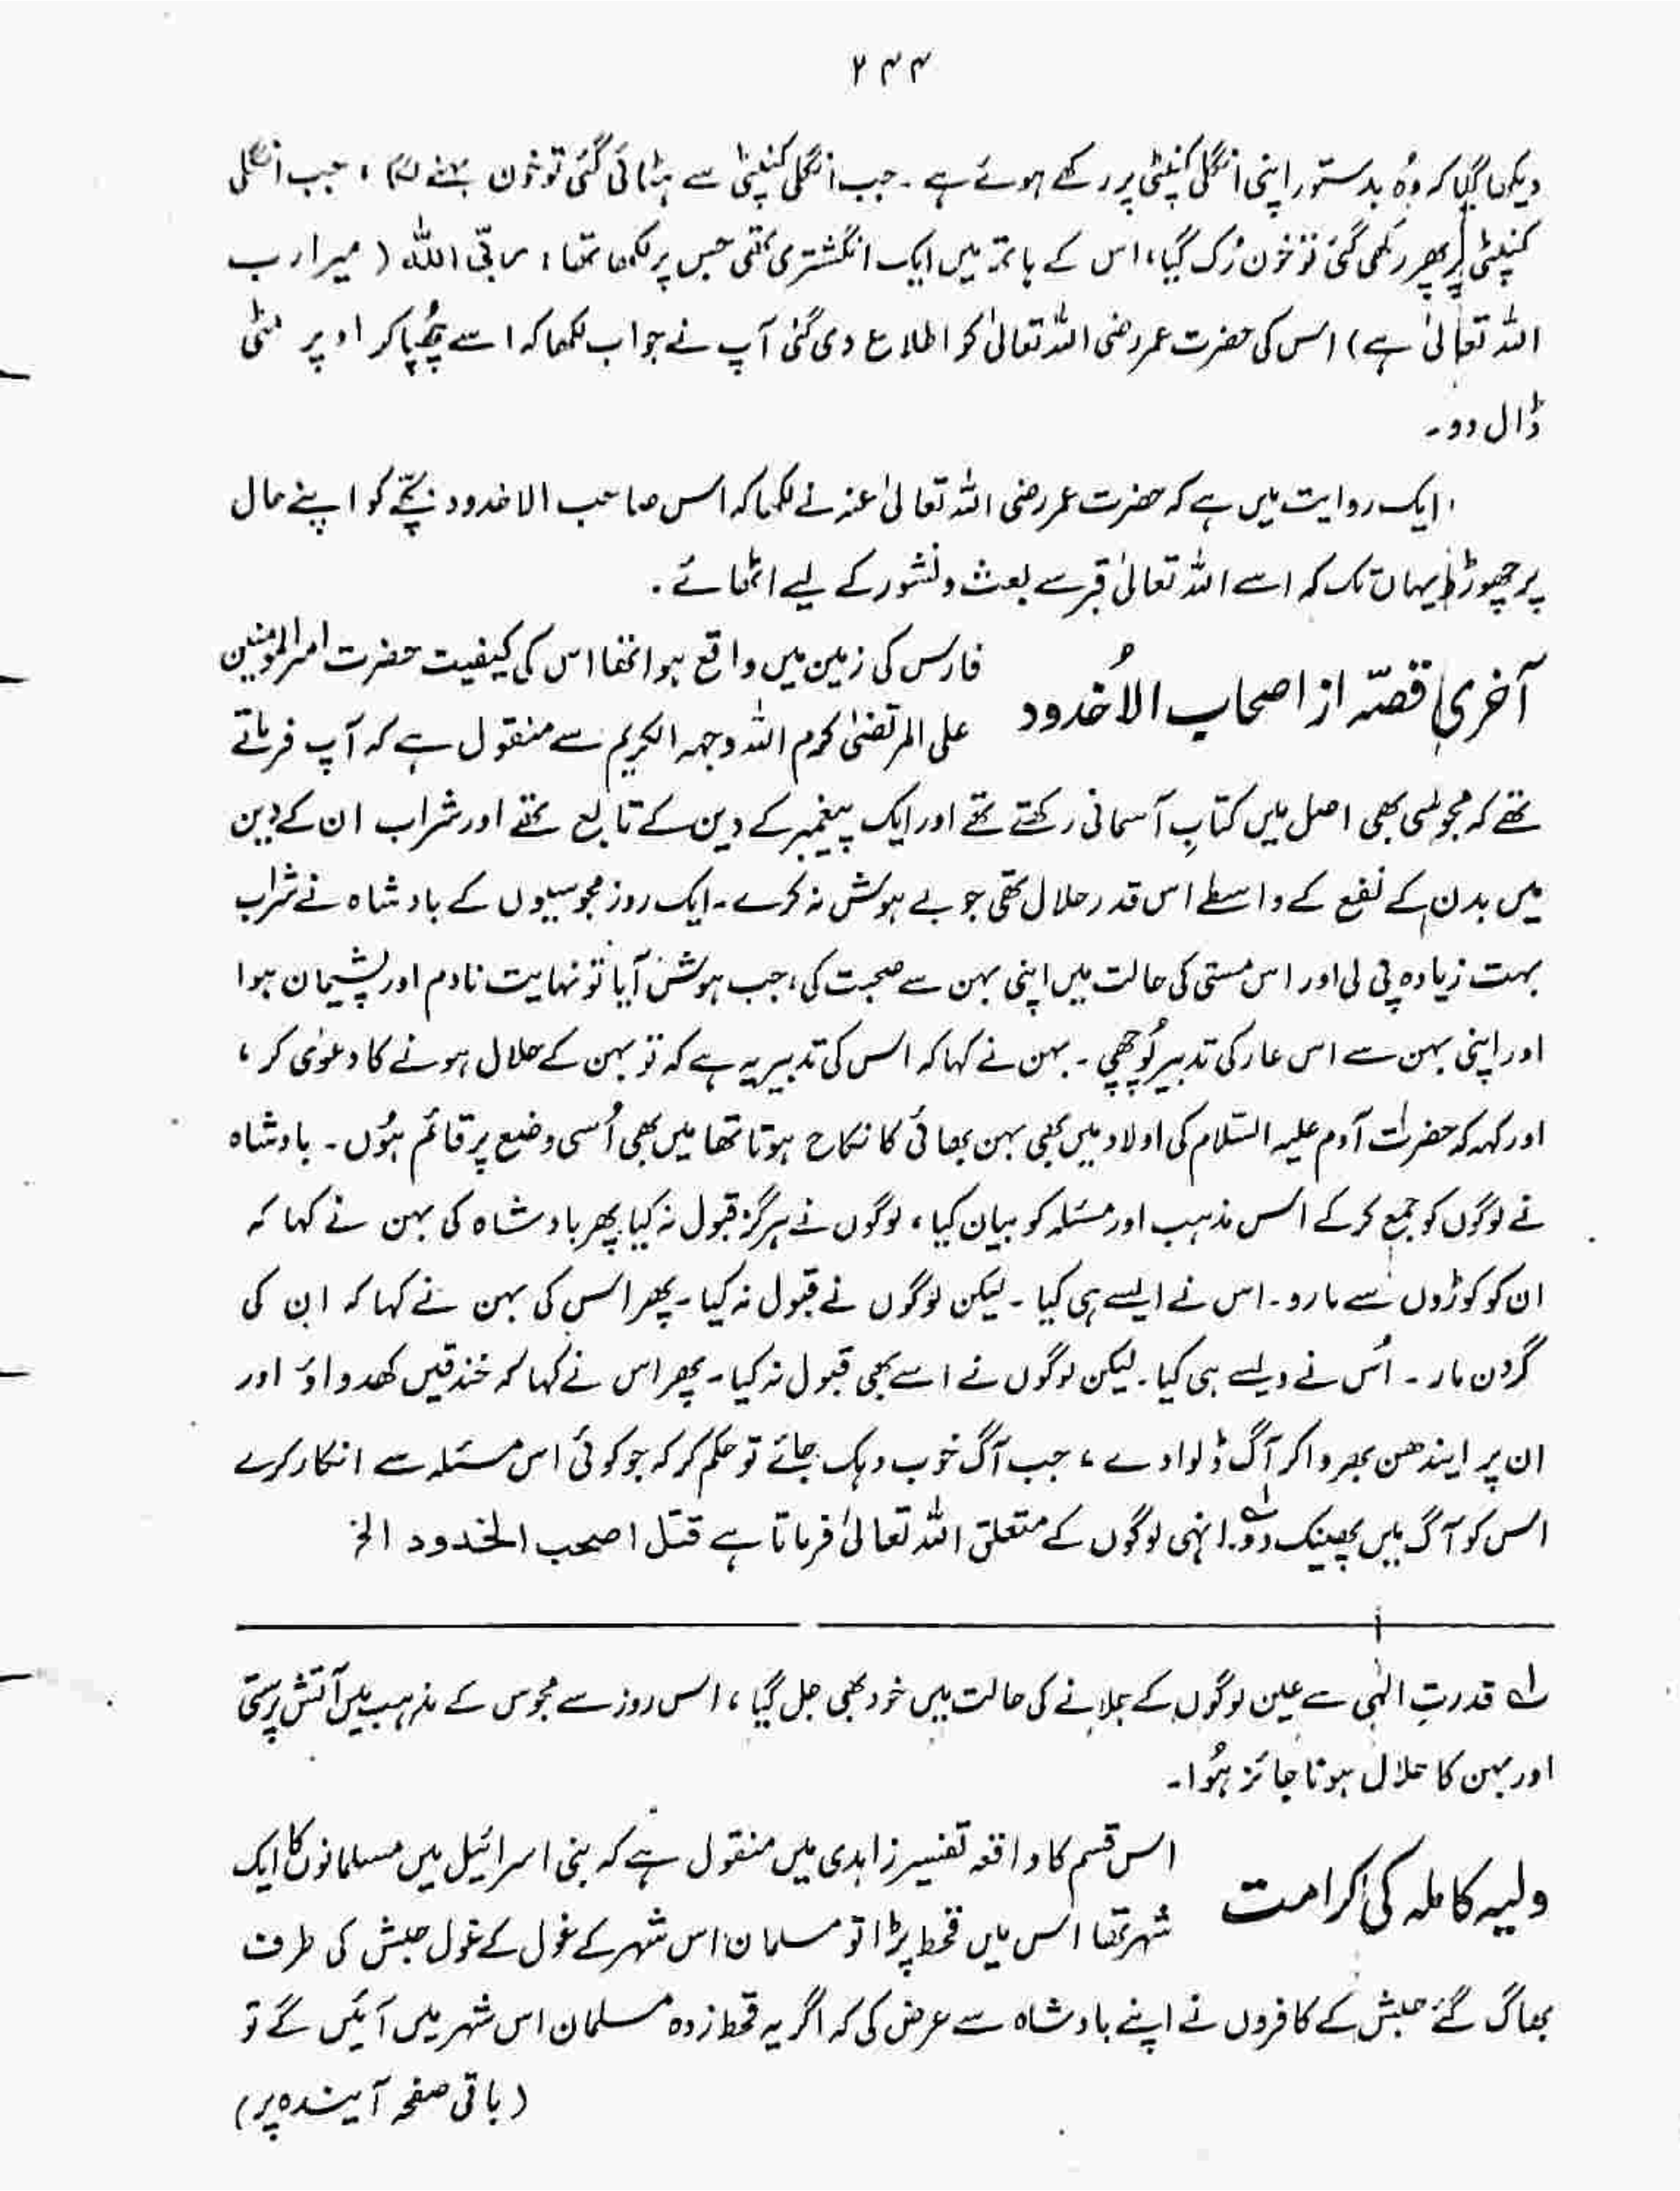 ۲۴۴
دیکھا گیا کہ وُہ بدستور اپنی انگلی کنپٹی پر رکھے ہوئے ہے ۔ جب انگلی کنپٹی سے ہٹائی گئی تو خون بہنے لگا ، جب انگلی
کنپٹی پر پھر رکھی گئی تو خون رُک گیا ، اس کے ہاتھ میں ایک انگشتری تھی جس پر لکھا تھا : ربّی اللہ ( میرا رب
اللہ تعالیٰ ہے ) اس کی حضرت عمر رضی اللہ تعالیٰ کو اطلاع دی گئی آپ نے جواب لکھا کہ اسے چُھپا کر اوپر مٹی
ڈال دو ۔
ایک روایت میں ہے کہ حضرت عمر رضی اللہ تعالیٰ عنہ نے لکھا کہ اس صاحب الاخدود بچّے کو اپنے حال
پر چھوڑ یہاں تک کہ اسے اللہ تعالیٰ قبر سے بعث و نشور کے لیے اٹھائے ۔
آخری قصّہ از اصحاب الاُخدود فارس کی زمین میں واقع ہوا تھا اس کی کیفیت حضرت امیر المومنین
علی المرتضیٰ کرم اللہ وجہہ الکریم سے منقول ہے کہ آپ فرماتے
تھے کہ مجوسی بھی اصل میں کتابِ آسمانی رکھتے تھے اور ایک پیغمبر کے دین کے تابع تھے اور شراب ان کے دین
میں بدن کے نفع کے واسطے اس قدر حلال تھی جو بے ہوش نہ کرے ۔ ایک روز مجوسیوں کے بادشاہ نے شراب
بہت زیادہ پی لی اور اس مستی کی حالت میں اپنی بہن سے صحبت کی ، جب ہوش آیا تو نہایت نادم اور پشیمان ہوا
اور اپنی بہن سے اس عار کی تدبیر پُوچھی ۔ بہن نے کہا کہ اس کی تدبیر یہ ہے کہ تو بہن کے حلال ہونے کا دعوٰی کر ،
اور کہہ کہ حضرت آدم علیہ السّلام کی اولاد میں بھی بہن بھائی کا نکاح ہوتا تھا میں بھی اُسی وضع پر قائم ہُوں ۔ بادشاہ
نے لوگوں کو جمع کر کے اس مذہب اور مسئلہ کو بیان کیا ، لوگوں نے ہرگز قبول نہ کیا پھر بادشاہ کی بہن نے کہا کہ
ان کو کوڑوں سے مارو ۔ اس نے ایسے ہی کیا ۔ لیکن لوگوں نے قبول نہ کیا ۔ پھر اس کی بہن نے کہا کہ ان کی
گردن مار ۔ اُس نے ویسے ہی کیا ۔ لیکن لوگوں نے اسے بھی قبول نہ کیا ۔ پھر اس نے کہا کہ خندقیں کھدواؤ اور
ان پر ایندھن بھروا کر آگ ڈلوا دے ، جب آگ خوب دہک جائے تو حکم کر کہ جو کوئی اس مسئلہ سے انکار کرے
اس کو آگ میں پھینک دو لہ انہی لوگوں کے متعلق اللہ تعالیٰ فرماتا ہے قتل اصحب الاخدود الخ
لہ قدرتِ الٰہی سے عین لوگوں کے جلانے کی حالت میں خود بھی جل گیا ، اس روز سے مجوس کے مذہب میں آتش پرستی
اور بہن کا حلال ہونا جائز ہُوا ۔
ولیہ کاملہ کی کرامت اس قسم کا واقعہ تفسیر زاہدی میں منقول ہے کہ بنی اسرائیل میں مسلمانوں کا ایک
شہر تھا اس میں قحط پڑا تو مسلمان اس شہر کے غول کے غول حبش کی طرف
بھاگ گئے حبش کے کافروں نے اپنے بادشاہ سے عرض کی کہ اگر یہ قحط زدہ مسلمان اس شہر میں آئیں گے تو
( باقی صفحہ آیندہ پر )